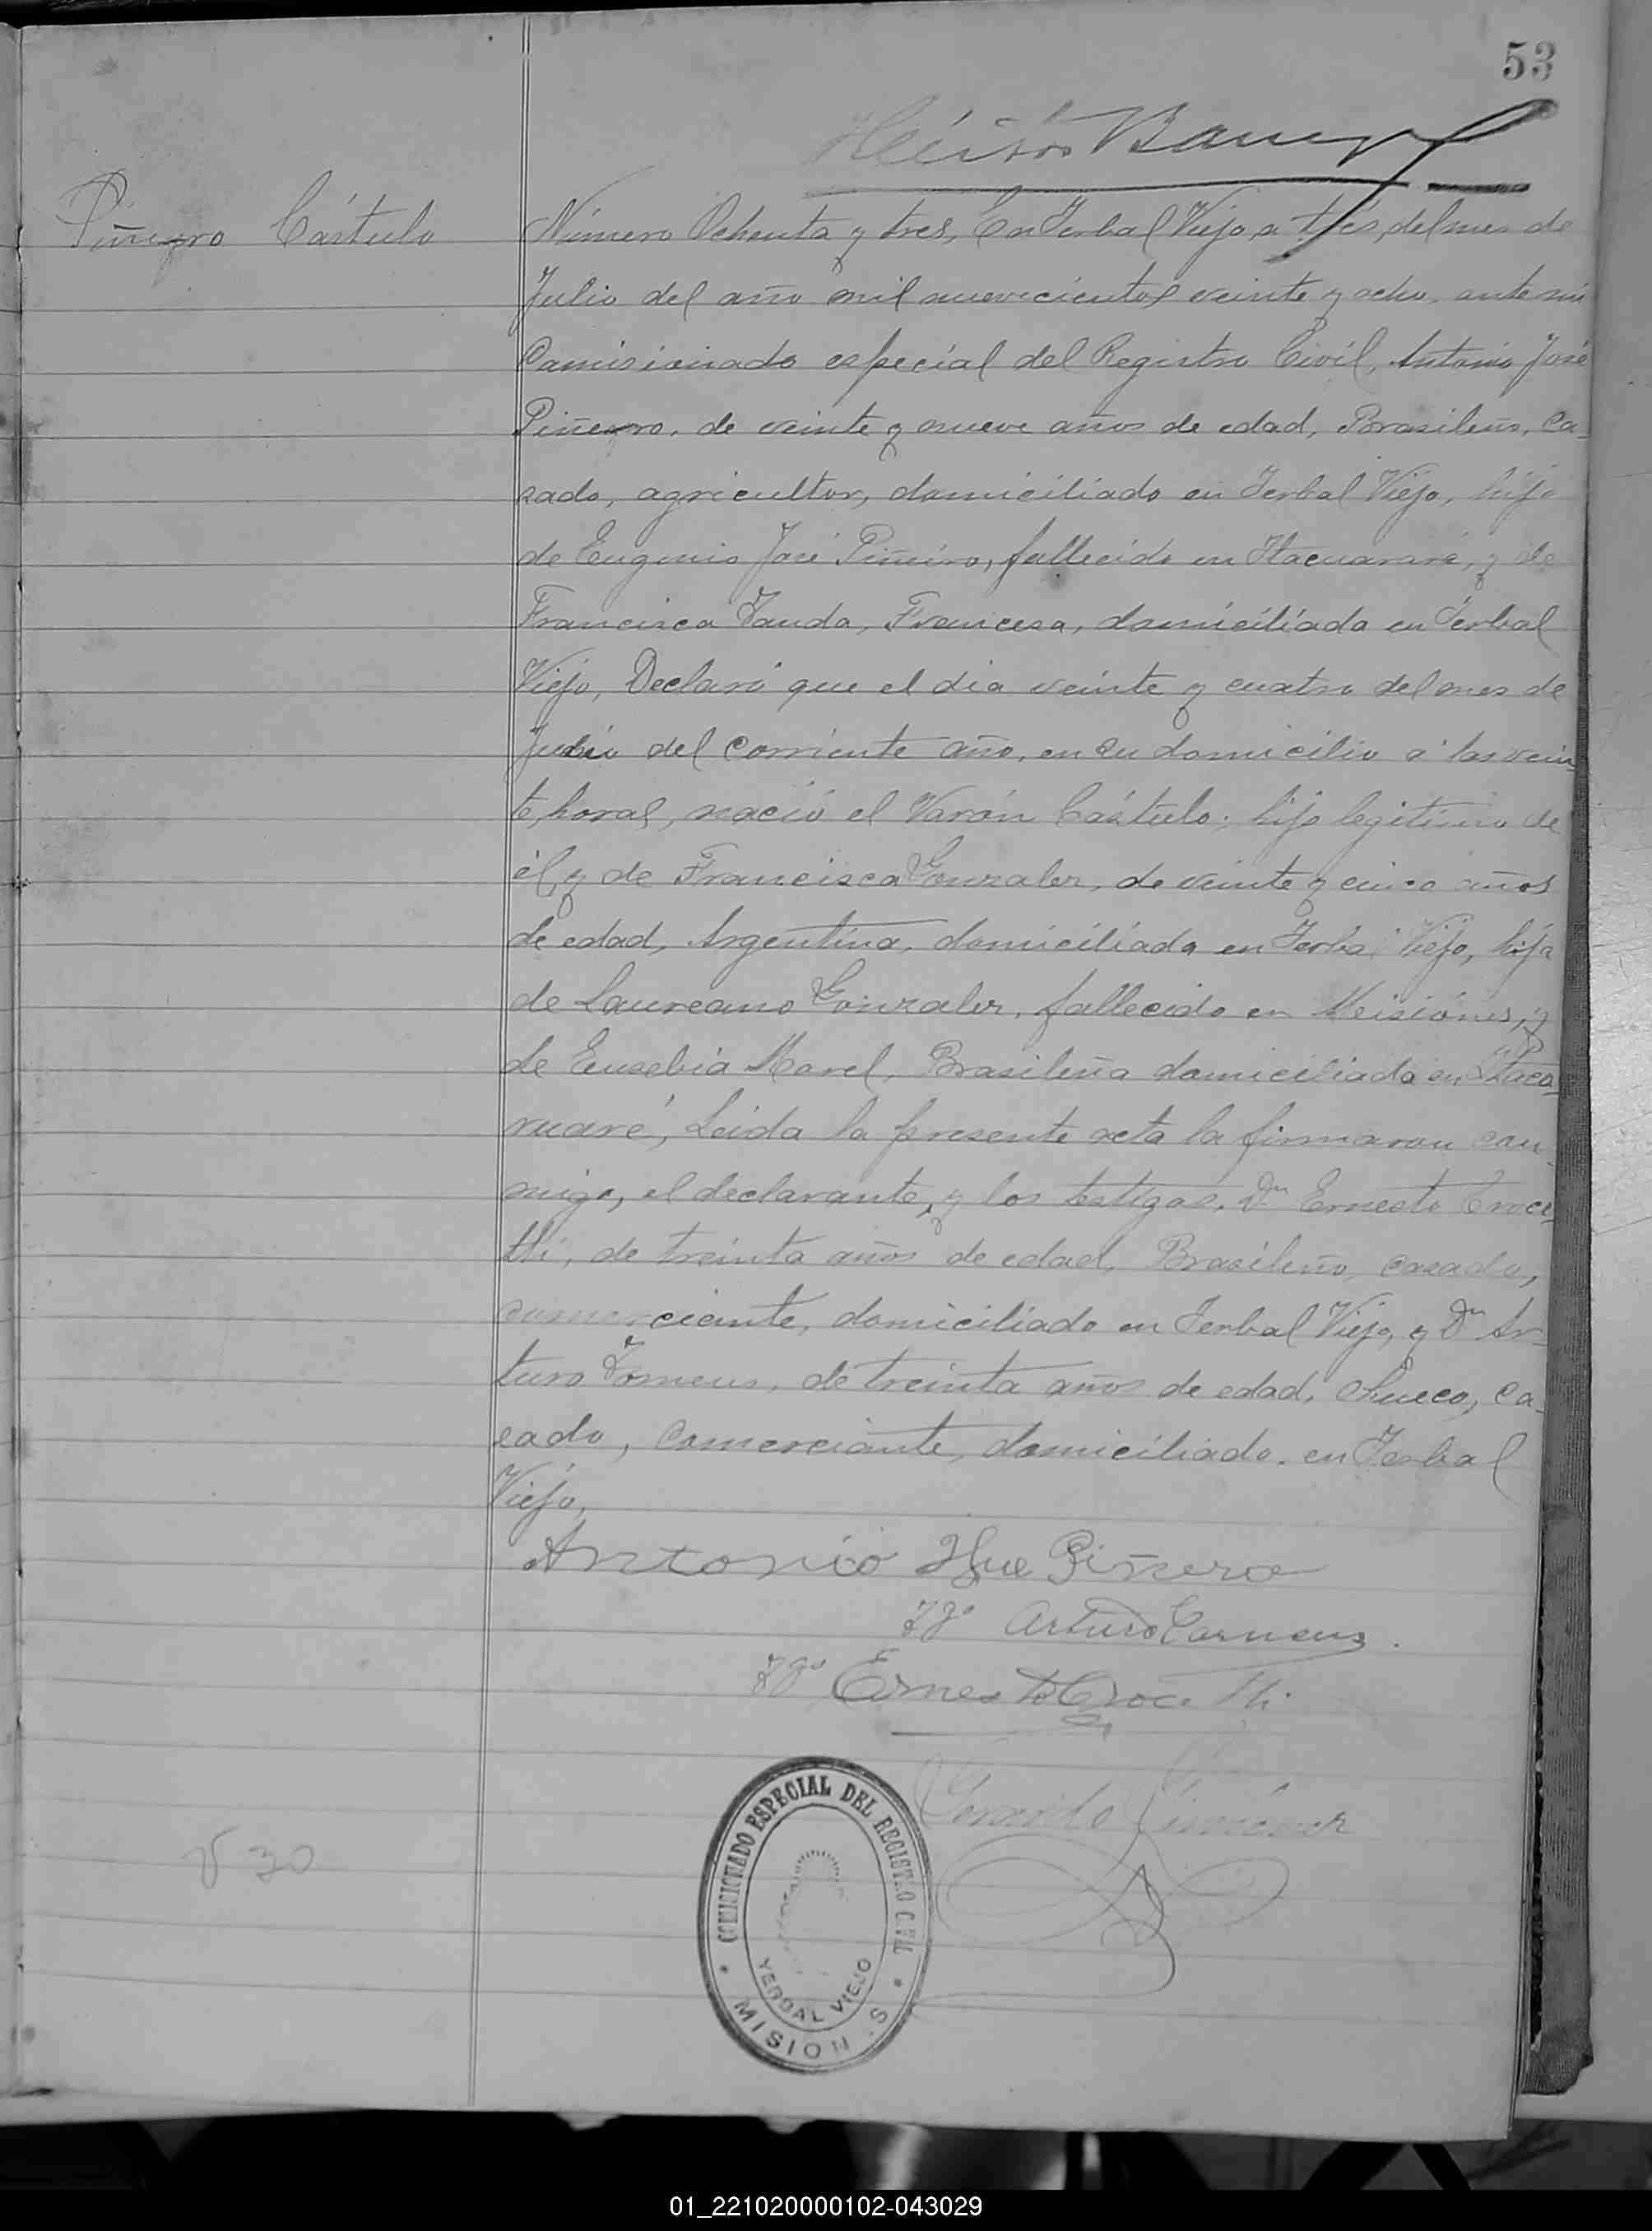 53
Piñeyro Cástulo
Número Ochenta y tres, En Yerbal Viejo, a trés, del mes de
Julio del año mil nuevecientos veinte y ocho, ante mi
Comisionado especial del Registro Civil, Antonio José
Piñeyro, de veinte y nueve años de edad, Brasileño, Ca-
sado, agricultor, domiciliado en Yerbal Viejo, hijo
de Eugenio José Piñeiro, fallecido en Itacuararé, y de
Francisca Fauda, Francesa, domiciliada en Yerbal
Viejo, Declaró que el dia veinte y cuatro del mes de
del corriente año, en su domicilio a las vein-
te, horas, nació el Varón Cástulo; hijo legitimo de
él, y de Francisca Gonzalez, de veinte y cinco años
de edad, Argentina, domiciliada en Yerbal Viejo, hija
de Laureano Gonzalez, fallecido en Misiónes, y
de Eusebia Morel, Brasileña domiciliada en Itaca-
ruaré, Leida la presente acta la firmaron con-
migo, el declarante, y los testigos, Dn Ernesto Croce-
thi, de treinta años de edad, Brasileño, casado,
comerciante, domiciliado en Yerbal Viejo, y Dn Ar-
turo Forneus, de treinta años de edad, Sueco, Ca-
sado, Comerciante, domiciliado, en Yerbal
Viejo,
Antonio Piñero
Tgo Arturo Forneus.
Tgo Ernesto Croce thi.
COMISIONADO ESPECIAL DEL REGISTRO CIVIL
YERBAL VIEJO
MISIONES
V 30
01_221020000102-043029